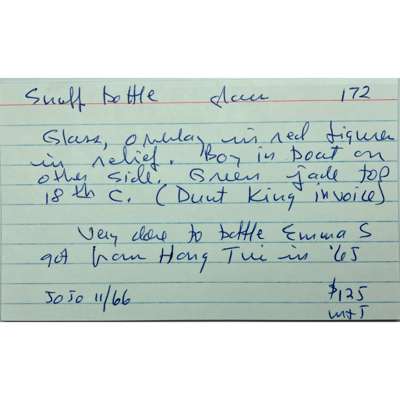 Snuff bottle glass 172
Glass, overlay in red figures
in relief. Boy in boat on
other side. Green jade top
18th C. (Dunt King invoice)
Very close to bottle Emma S
got from Hong Tui in '65
JoJo 11/66 $125